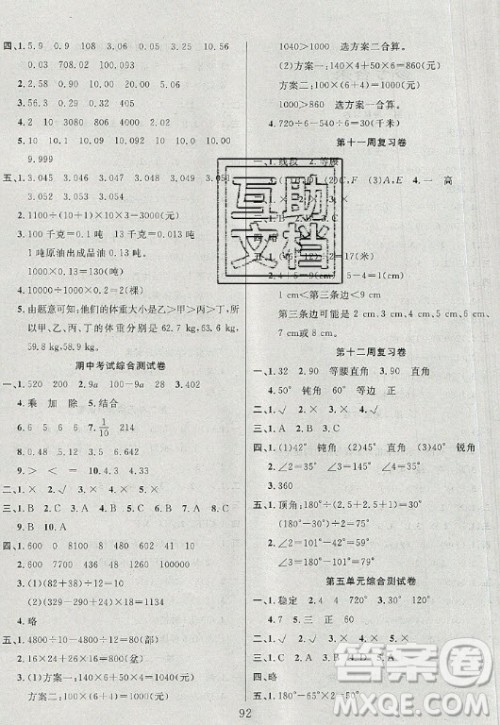 四、1.5.9 0.9 9 0.05 10.9
0.03 708.02 103.6
2.2.58 5.00 8.36 10.00
3.56.3 0.2 8.25 0.14
4.600 280 97 0.013 0.007 10.01
9.999
五、1.3.045 3.046 3.047 3.048 3.049
3.051 3.052 3.053 3.054
2.1100÷(10÷2)=220(元)
3.100 千克=0.1 吨 0.13÷0.1=1.3
1 吨原油出成品油 0.13 吨。
1.3×100=130(吨)
4.1000÷(10÷2)=200(棵)
5.由题意可知:他们的体重大小是乙>甲>丙>丁,所
以甲、乙、丙、丁的体重分别为 62.7 kg,62.1 kg,
59.8 kg。
期中考试综合测试卷
一、1.520 200 2.9a 100-9a 28 3.402
4.乘 加 除 5.结合
6.5 6 8 7.1/10
8.0.48 0.5
9.> < = = 10.4.3 3.4
二、1.× 2.√ 3.× 4.× 5.×
三、1.C 2.B 3.B 4.B 5.A 6.C 7.B 8.C
9.B 10.A
四、1.600 600 0 8100 4802 10 41
2.11 1000 8600 78 678 110
3.(1)(82+34)×2=232(cm)
(2)(329+271)×2=1200(m)
4.略
五、1.4800÷12-4800÷15=80(部)
2.16×24-13×24=72(盆)
3.(1)方案一:120×4+60×6=840(元)
方案二:100×(4+6)=1000(元)
1040>1000 选方案二合算。
(2)方案一:120×4+50×6=860(元)
方案二:100×(6+4)=1000(元)
1000>860 选方案一合算。
4.720÷6-540÷6=30(千米)
第十一周复习卷
一、1.线段 2.等腰
高
互助
文档
四、略
1 cm<第三条边<9 cm
第三条边可能是 2 cm,3 cm,4 cm,5 cm,6 cm,
7 cm,8 cm。
第十二周复习卷
一、1.32 2.90 等腰直角 3.正 4.90
5.50 钝角 6.等边 正 7.40
二、1.√ 2.× 3.√ 4.×
三、1.B 2.C 3.B 4.A 5.A
四、(1)42° 钝角 (2)45° 直角 (3)60° 锐角
2.∠2=35° ∠3=110° ∠4=70°
3.∠2=54° ∠3=96°
五、1.顶角:180°÷(2.5+2.5+1)=30°
底角:(180°-30°)÷2=75°
2.∠1=180°-137°=43°
∠2=180°-110°-43°=27°
3.(180°-30°)÷2=75°
第五单元综合测试卷
一、1.稳定 2.4 4 720° 3.2
4.70 5.三 正 60
二、1.× 2.√ 3.× 4.√
三、1.C 2.B 3.A 4.D 5.D
四、略
92
答案圈
MXQE.COM